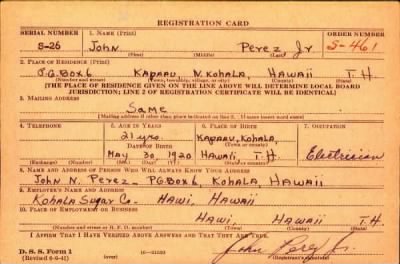 REGISTRATION CARD
SERIAL NUMBER 1. NAME (Print) ORDER NUMBER
S-26 John Perez Jr S-461
(First) (Middle) (Last)
2. PLACE OF RESIDENCE (Print)
P.O. Box 6 Kapaau, N. Kohala, Hawaii T. H
(Number and street) (Town, township, village, or city) (County) (State)
[THE PLACE OF RESIDENCE GIVEN ON THE LINE ABOVE WILL DETERMINE LOCAL BOARD
JURISDICTION; LINE 2 OF REGISTRATION CERTIFICATE WILL BE IDENTICAL]
3. MAILING ADDRESS
Same
[Mailing address if other than place indicated on line 2. If same insert word same]
4. TELEPHONE 5. AGE IN YEARS 6. PLACE OF BIRTH 7. OCCUPATION
21 yrs Kapaau, Kohala,
DATE OF BIRTH (Town or county)
May 30 1920 Hawaii T. H. Electrician
(Exchange) (Number) (Mo.) (Day) (Yr.) (State or country)
8. NAME AND ADDRESS OF PERSON WHO WILL ALWAYS KNOW YOUR ADDRESS
John N. Perez - P.O Box 6, Kohala, Hawaii
9. EMPLOYER'S NAME AND ADDRESS
Kohala Sugar Co. Hawi, Hawaii
10. PLACE OF EMPLOYMENT OR BUSINESS
Hawi, Hawaii T. H.
(Number and street or R. F. D. number) (Town) (County) (State)
I AFFIRM THAT I HAVE VERIFIED ABOVE ANSWERS AND THAT THEY ARE TRUE.
D. S. S. Form 1
(Revised 6-9-41) (over) John Perez Jr.
(Registrant's signature)